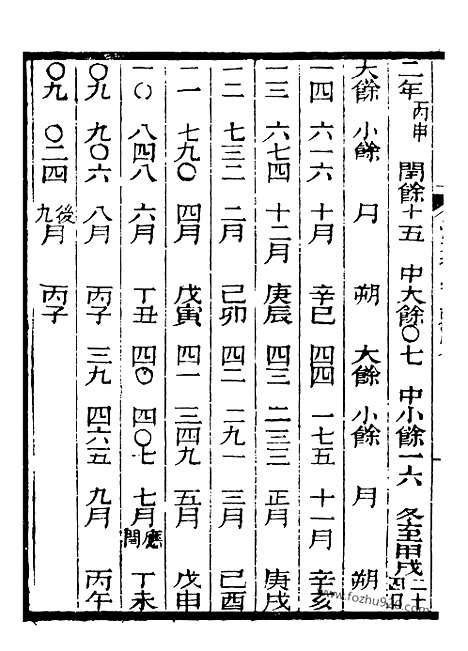 二年丙申 閏餘十五 中大餘〇七 中小餘一六 冬至甲戌二十
大餘 小餘 月 朔 大餘 小餘 月 朔
一四 六一六 十月 辛巳 四四 一七五 十一月 辛亥
一三 六七四 十二月 庚辰 四三 二三三 正月 庚戌
一二 七三二 二月 己卯 四二 二九一 三月 己酉
一一 七九〇 四月 戊寅 四一 三四九 五月 戊申
一〇 八四八 六月 丁丑 四〇 四〇七 七月應閏 丁未
〇九 九〇六 八月 丙子 三九 四六五 九月 丙午
〇九 〇二四 後九月 丙子
www.fozhu920.com